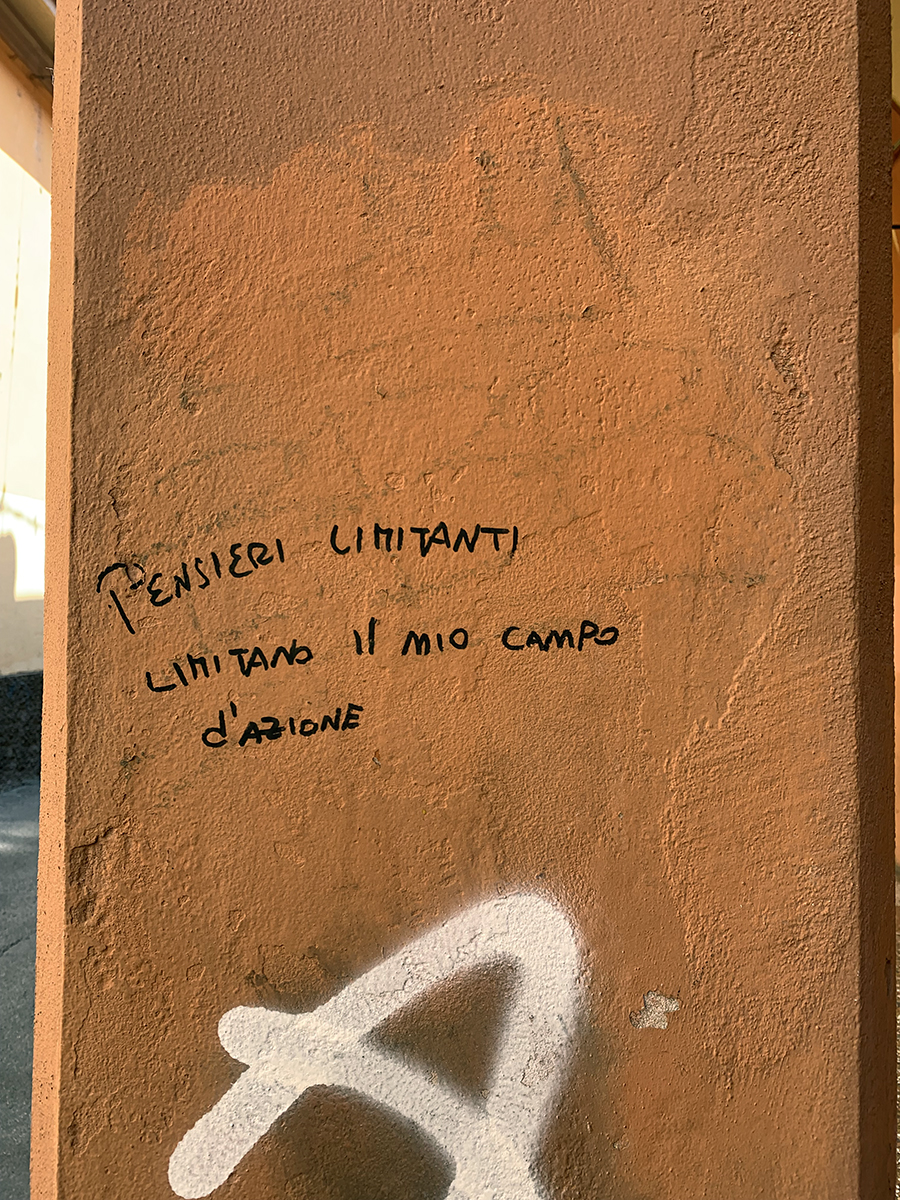 PENSIERI LIMITANTI
LIMITANO Il MIO CAMPO
d'AZIONE
A